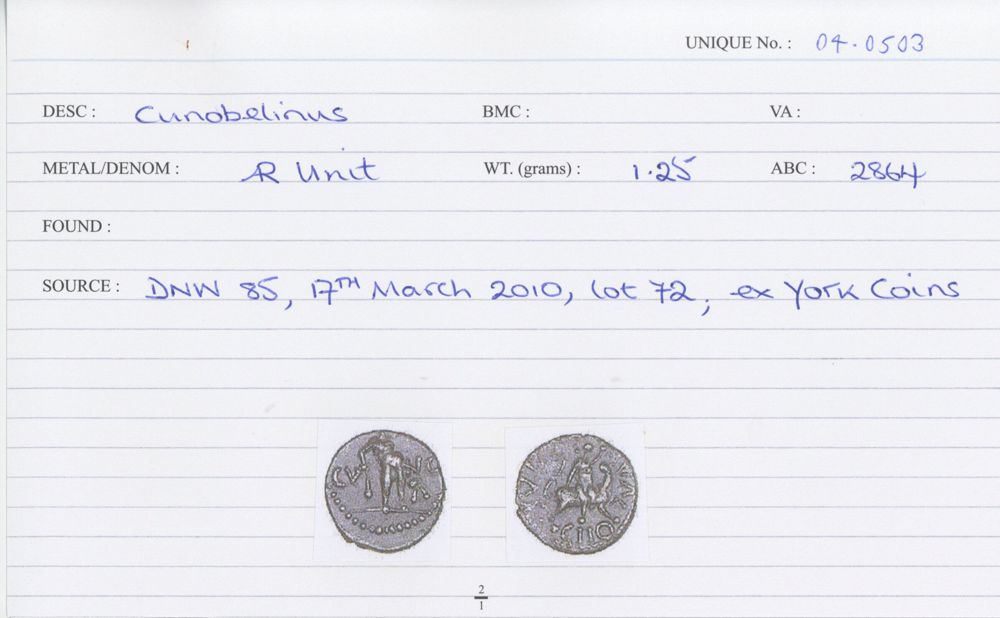 UNIQUE No. : 04.0503
DESC : Cunobelinus BMC : VA :
METAL/DENOM : AR Unit WT. (grams) : 1.25 ABC : 2864
FOUND :
SOURCE : DNW 85, 17TH March 2010, lot 72, ex York Coins
2
1